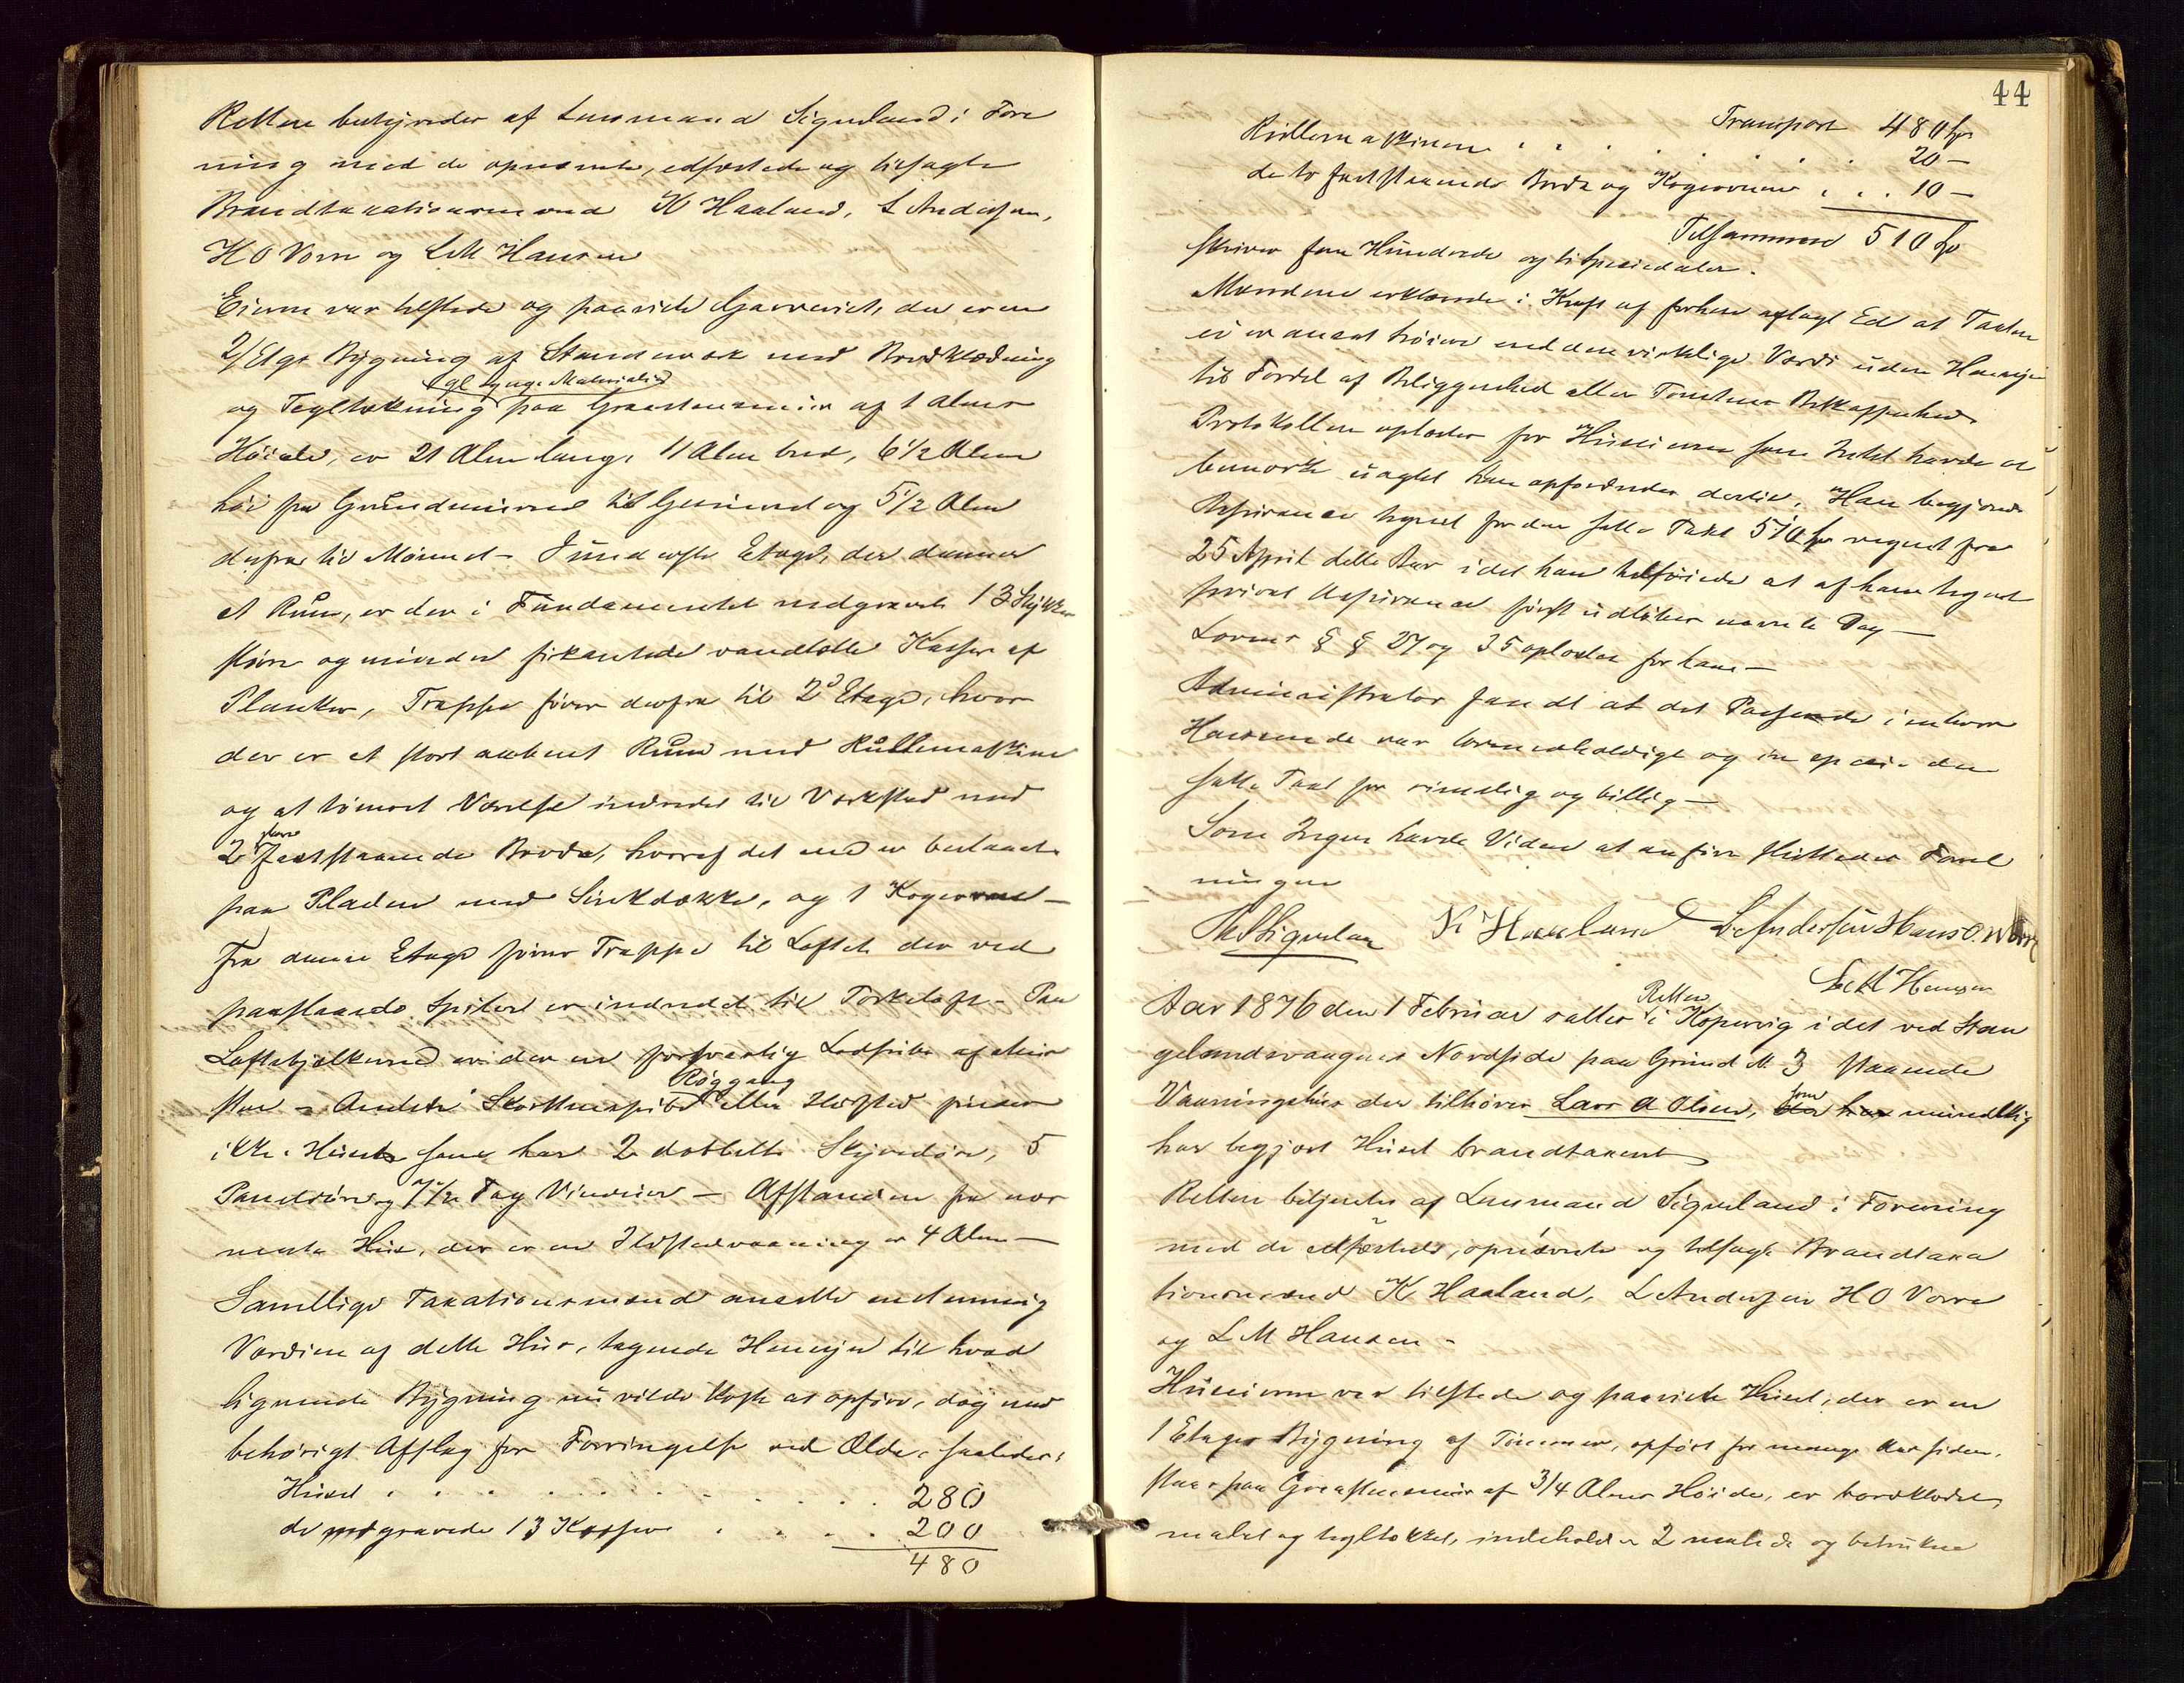 Retten betjentes af Lensmand Sigvaland i Fore
ning med de opnævnte, edfæstede og tilsagte
Brandtaxationsmænd K Haaland, L Andersen,
H O Vorre og L M Hansen
Eieren var tilstede og paaviste Garveriet, der er en
2 Etages Bygning af Standværk med Bordklædning
og Tegltækning paa Graastensmuur af 1 Alens
Høide, er 21 Alen lang, 11 Alen bred, 6 1/2 Alen
høi fra Grundmuren til Gesimsen og 5 1/2 Alen
derfra til Mønnet. I underste Etage, der danner
et Rum, er der i Fundamentet nedgravet 13 Stykker
større og mindre firkantede vandtætte Kasser af
Planker, Trappe fører derfra til 2d Etage, hvor
der er et stort aabent Rum med Rullemaskine
og et tømret Værelse indredet til Værksted med
2 store faststaaende Borde, hvoraf det ene er
paa Pladen med Sinkdække, og 1 Kogeovn –
Fra denne Etage fører Trappe til Loftet der ved
paastaaende Spiler er indredet til Tørkeloft – Paa
Loftsbjelkerne er der en forsvarlig af
– Andet Skorstenspibe Røggang eller Ildsted findes
ikke. Huset som har 2 dobbelte Skyvedøre, 5
Paneldøre og 7 1/2 Fag Vinduer – Afstanden fra nær
meste Hus, der er en Ildstedvaaning er 4 Alen –
Samtlige Taxationsmænd ansatte enstemmig
Værdien af dette Hus, tagende Hensyn til hvad
lignende Bygning nu vilde koste at opføre, dog med
behørigt Afslag for Forringelse ved Ælde, saaledes:
Huset . . . . . . . . . . 280
de nedgravede 13 Kasser . . . . 200
480
44
Transport 480 Sp
Rullemaskinen . . . . . . . . 20 –
de to faststaaende Borde og Kogeovnen . . . 10 –
Tilsammen 510 Sp
skriver fem Hundrede og ti Speciedaler.
Mændene erklærede i Kraft af forhen aflagt Ed at Taxten
ei er ansat høiere end den virkelige Værdi uden Hensyn
til Fordel af Beliggenhed eller Tomtens Beskaffenhed.
Protokollen oplæstes for Huseieren som Intet havde at
bemærke uagtet han opfordredes dertil. Han begjærede
Assurance tegnet for den satte Taxt 510 Sp regnet fra
25 April dette Aar idet han tilføiede at af ham tegnet
privat Assurance først udløber nævnte Dag –
Lovens § § 27 og 35 oplæstes for ham –
Administrator fandt at det Passerede i enhver
Henseende var lovmedholdigt og in specie den
satte Taxt for rimelig og billig –
Som Ingen havde Videre at anføre sluttedes Forret
ningen
K Haaland L. Andersen Hans O. Vorre
L M Hansen
Aar 1876 den 1 Februar sattes Retten i Kopervig i det ved Stan
gelandsvaagens Nordside paa Grund № 3 staaende
Vaaningshus der tilhører Lars A Olsen, som mundtlig
har begjært Huset brandtaxeret
Retten betjentes af Lensmand Sigvaland i Forening
med de edfæstede, opnævnte og tilsagte Brandtaxa
tionsmænd K Haaland, L Andersen H O Vorre
og L M Hansen –
Huseieren var tilstede og paaviste Huset, der er en
1 Etages Bygning af Tømmer, opført for mange Aar siden,
staar paa Graastensmuur af 3/4 Alens Høide, er bordklædet,
malet og tegltækket, indeholder 2 malede og betrukne